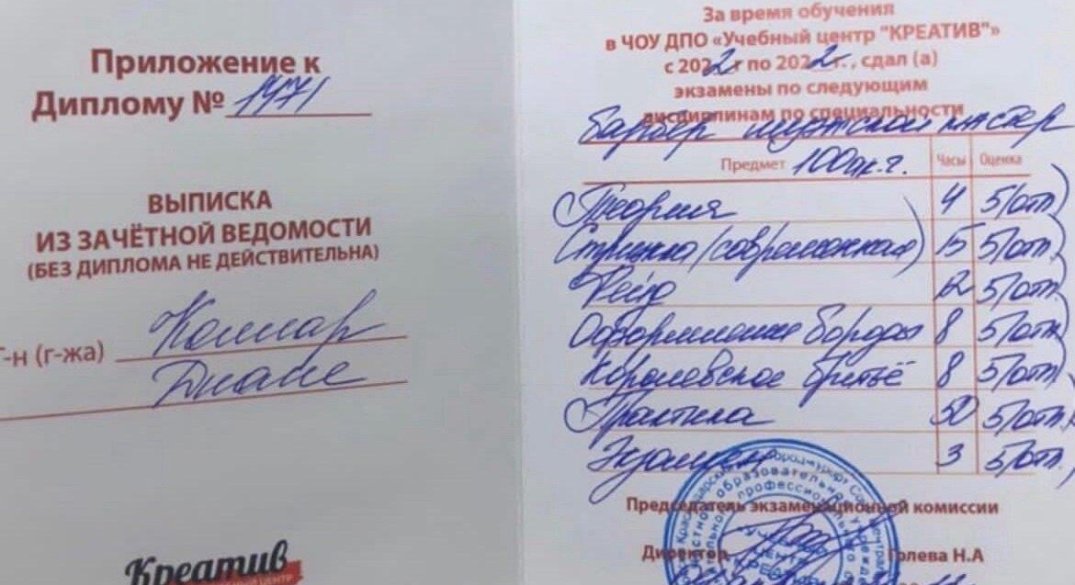 Приложение к
Диплому № 1471
ВЫПИСКА
ИЗ ЗАЧЁТНОЙ ВЕДОМОСТИ
(БЕЗ ДИПЛОМА НЕ ДЕЙСТВИТЕЛЬНА)
Г-н (г-жа)
Диане
Креатив
За время обучения
в ЧОУ ДПО «Учебный центр "КРЕАТИВ"»
с 2022 г по 2022 г., сдал (а)
экзамены по следующим
дисциплинам по специальности
Барбер мужской мастер
Предмет 100 ак.г. Часы Оценка
Теория 4 5(отл)
Стрижка (современная) 15 5(отл)
Фейд 12 5(отл)
Оформление бороды 8 5(отл)
Королевское бритьё 8 5(отл)
Практика 50 5(отл)
Экзамен 3 5(отл)
Председатель экзаменационной комиссии
Директор Голева Н.А